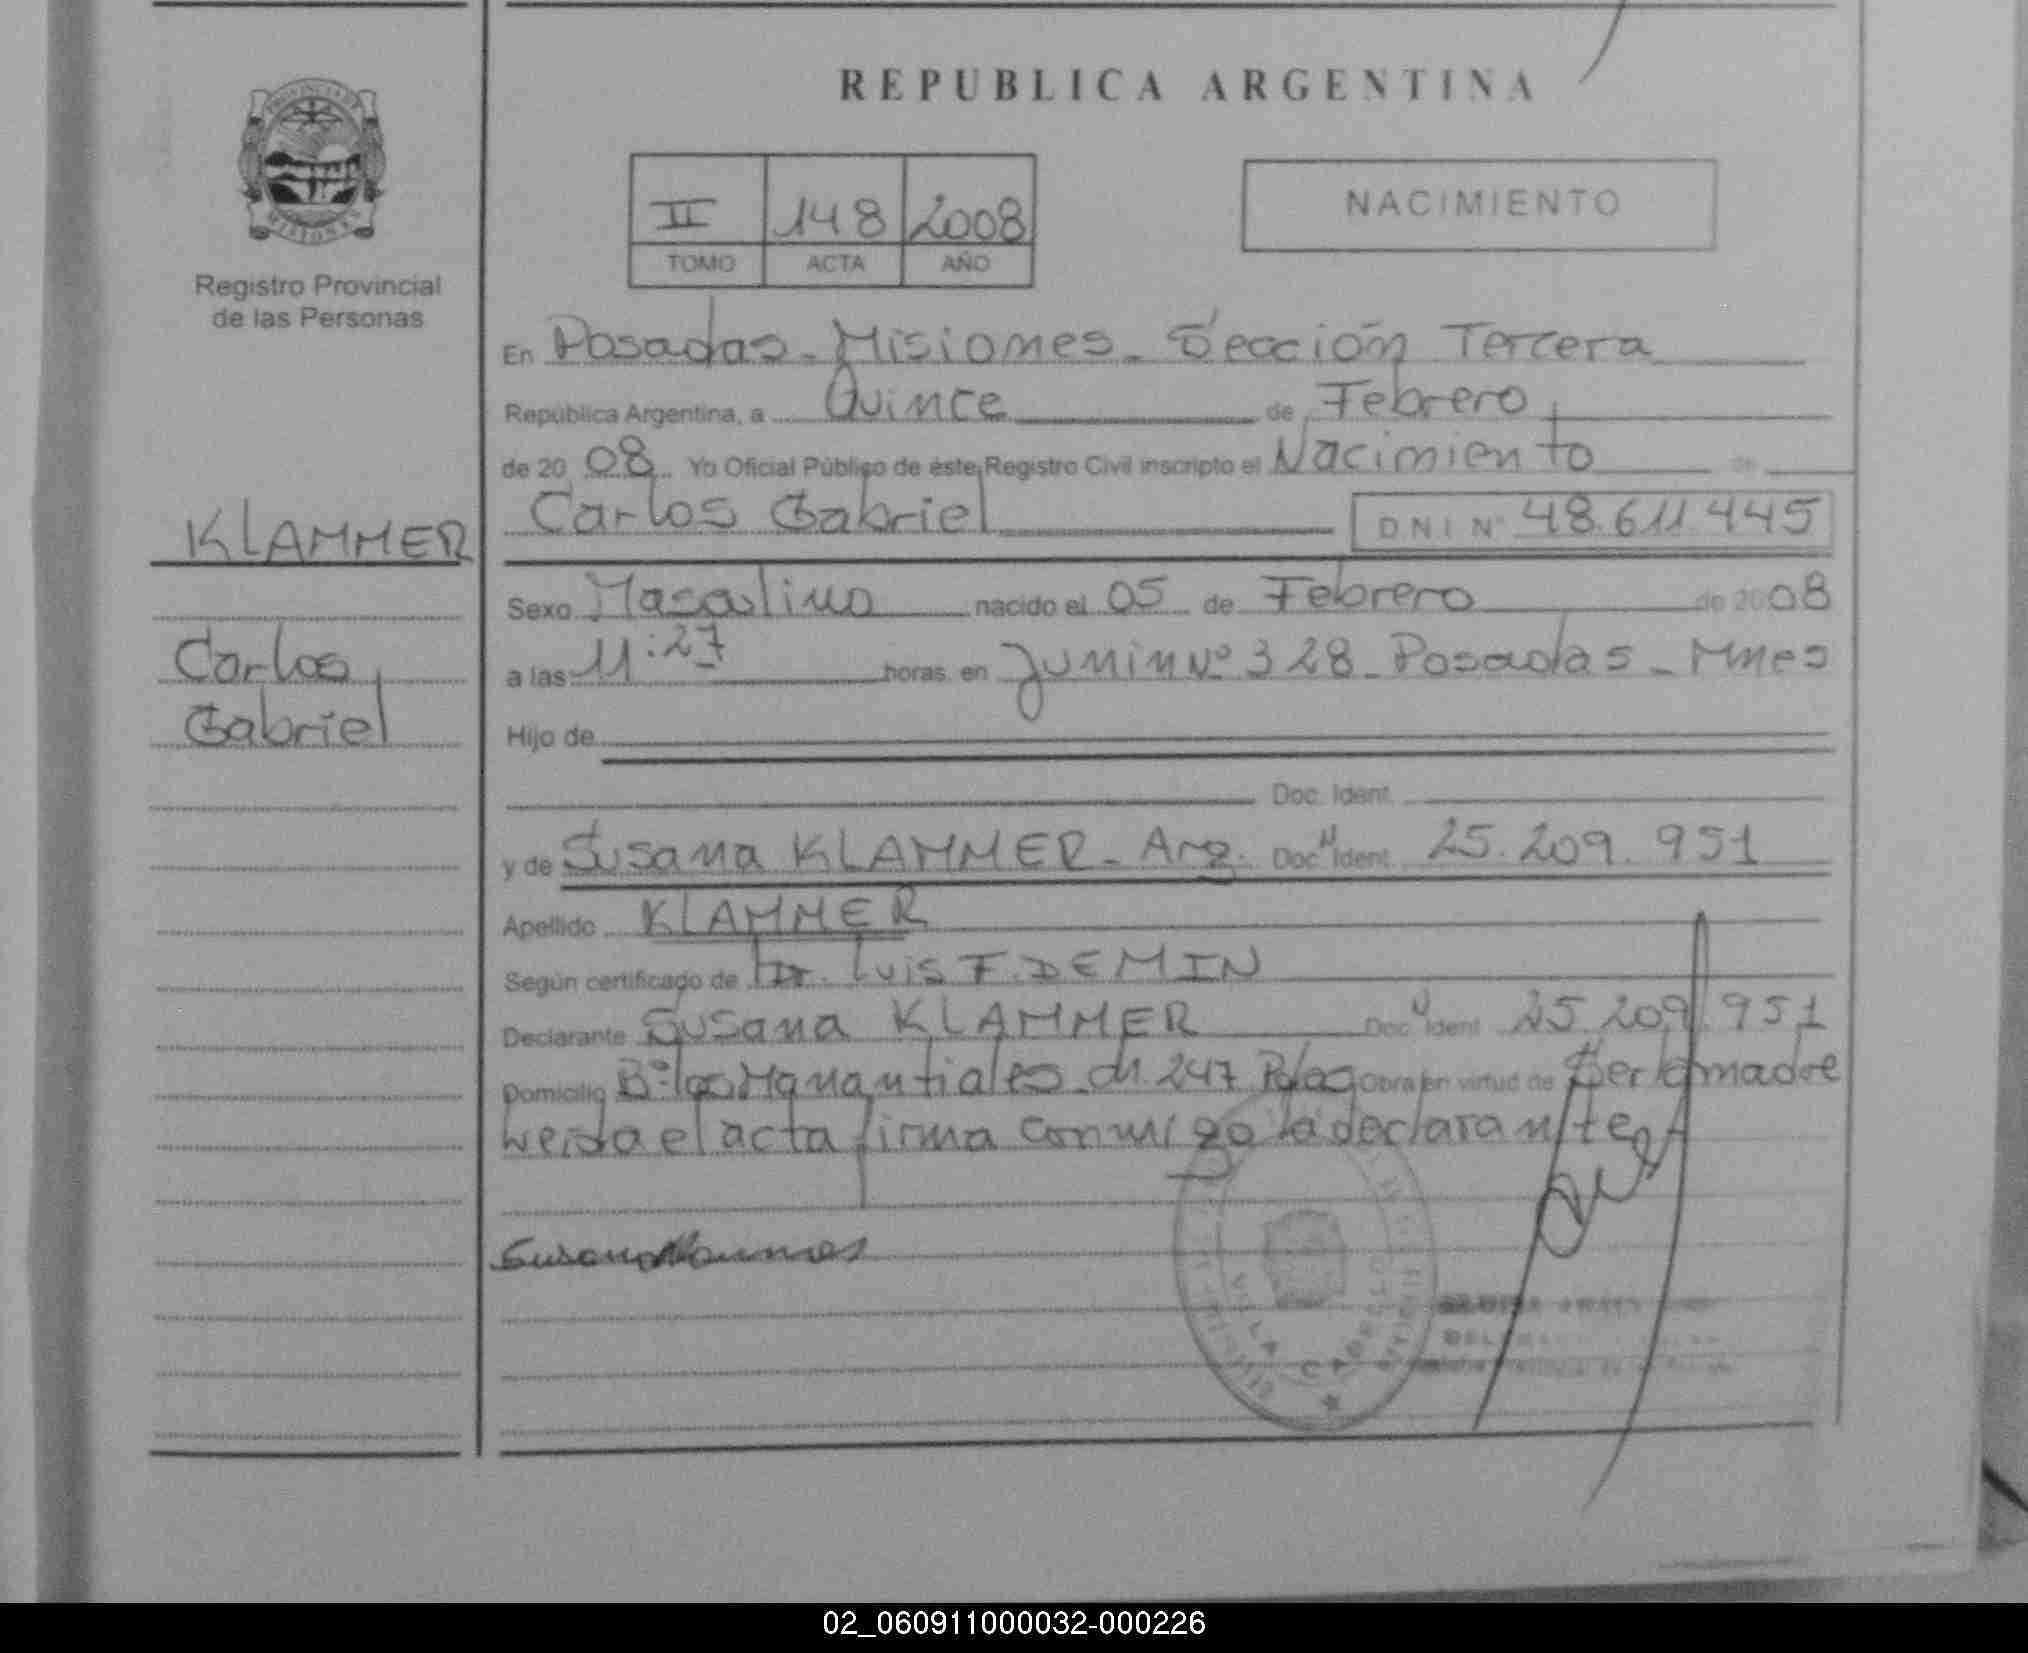 REPUBLICA ARGENTINA
PROVINCIA DE
MISIONES
Registro Provincial
de las Personas
II 148 2008
TOMO ACTA AÑO
NACIMIENTO
En Posadas - Misiones - Sección Tercera
República Argentina, a Quince de Febrero
de 20 08 Yo Oficial Público de éste Registro Civil inscripto el Nacimiento de
KLAMMER
Carlos Gabriel D.N.I Nº 48.611.445
Sexo Masculino nacido el 05 de Febrero de 2008
Carlos
Gabriel
a las 11:27 horas en Junin Nº 328 - Posadas - Mnes
Hijo de
Doc. Ident.
y de Susana KLAMMER - Arg. Doc. N Ident. 25.209.951
Apellido KLAMMER
Según certificado de Dr. Luis F. DEMIN
Declarante Susana KLAMMER Doc. N Ident. 25.209.951
Domicilio Bº los Manantiales ch. 247 Pdas Obra en virtud de Ser la madre
Leida el acta firma conmigo la declarante
VILLA CABELLO
02_060911000032-000226